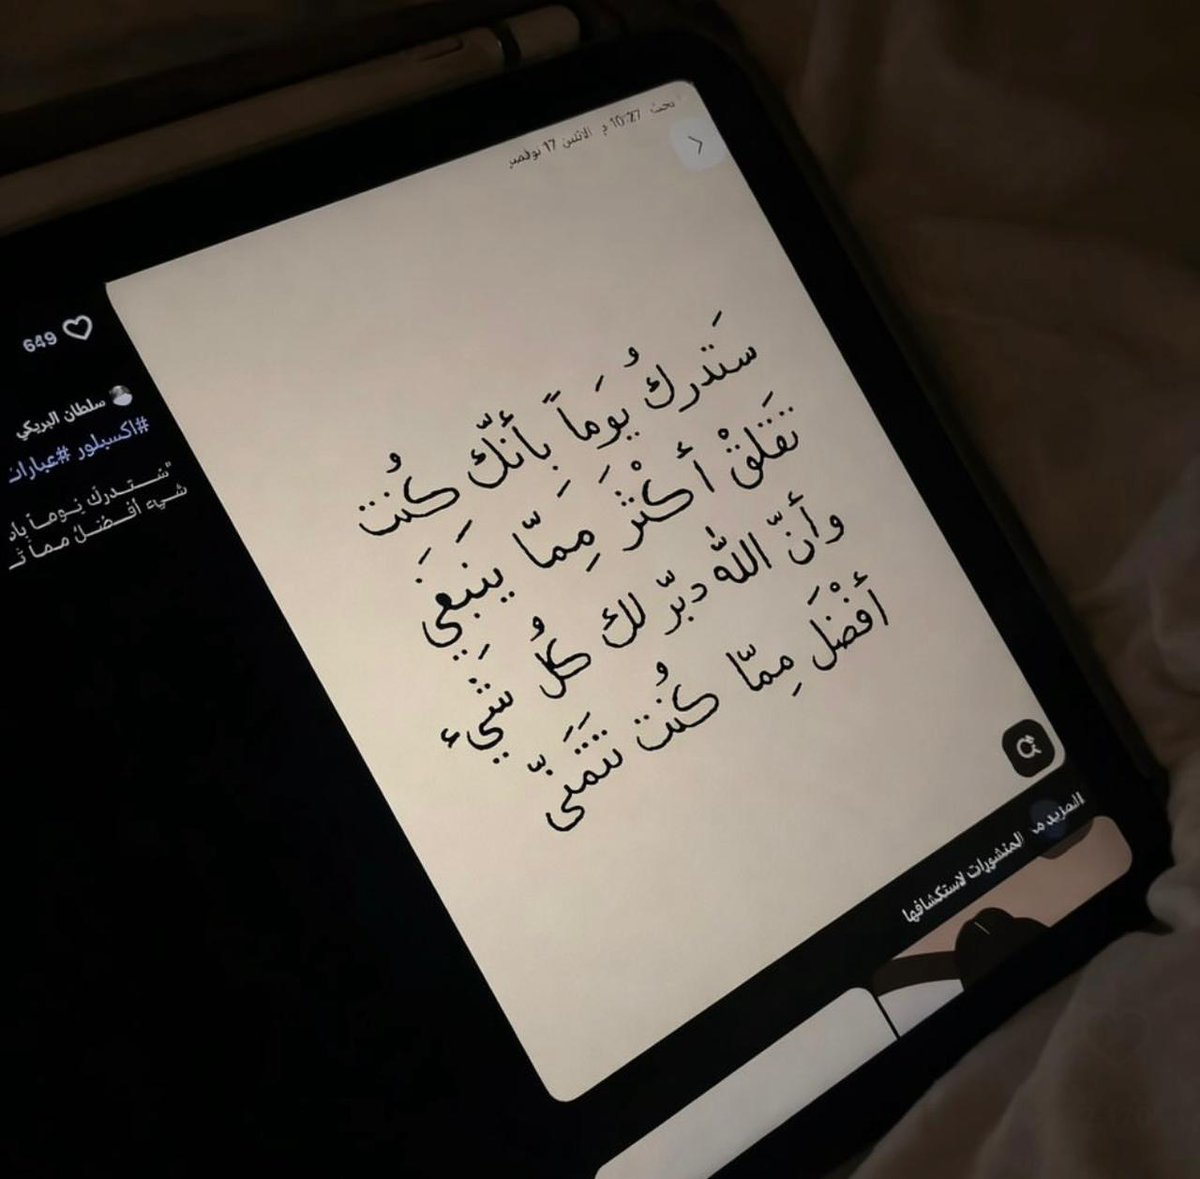 بحث 10:27 م الاثنين 17 نوفمبر
سَتَدركُ يَوَماً بِأنّك كُنت
تَقَلقْ أكثْر مِمَّا ينَبَغِي
وأنّ الله دبّر لك كُل شَيء
أفْضَل مِمّا كُنت تتَمَنّى
649
سلطان البريكي
#اكسبلور #عبارات
"سَتدركَ يَوماً
شيء أفضلُ مما
المزيد من المنشورات لاستكشافها